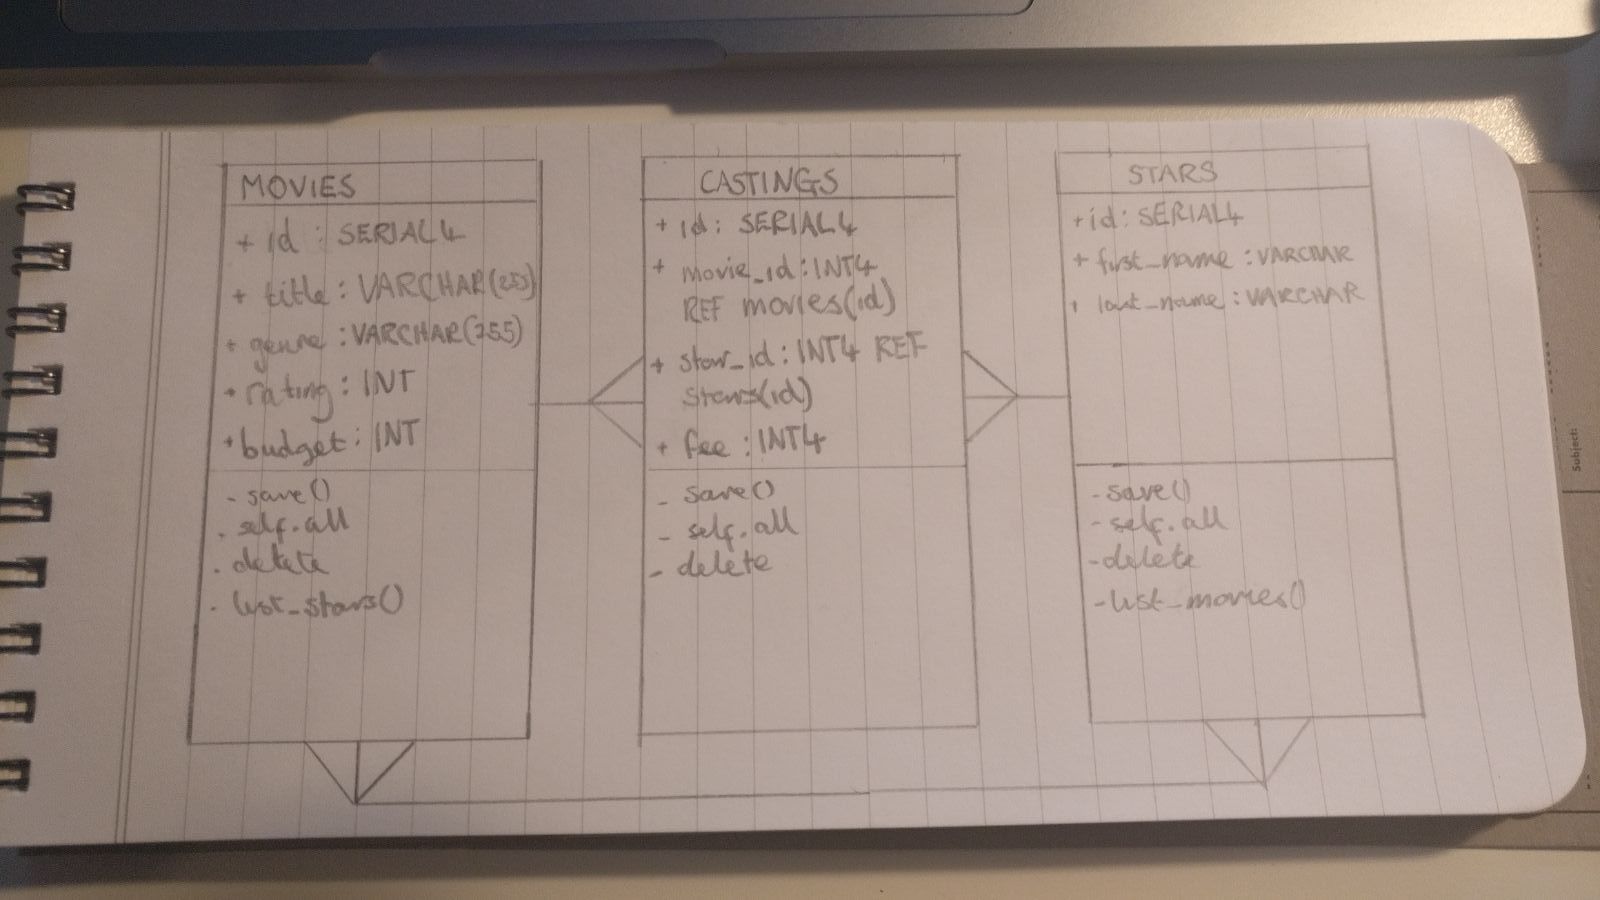 MOVIES
+ id : SERIAL4
+ title : VARCHAR(255)
+ genre : VARCHAR(255)
+ rating : INT
+ budget : INT
- save()
- self.all
- delete
- list_stars()
CASTINGS
+ id : SERIAL4
+ movie_id : INT4
REF movies(id)
+ star_id : INT4 REF
stars(id)
+ fee : INT4
- save()
- self.all
- delete
STARS
+ id : SERIAL4
+ first_name : VARCHAR
+ last_name : VARCHAR
- save()
- self.all
- delete
- list_movies()
Subject: